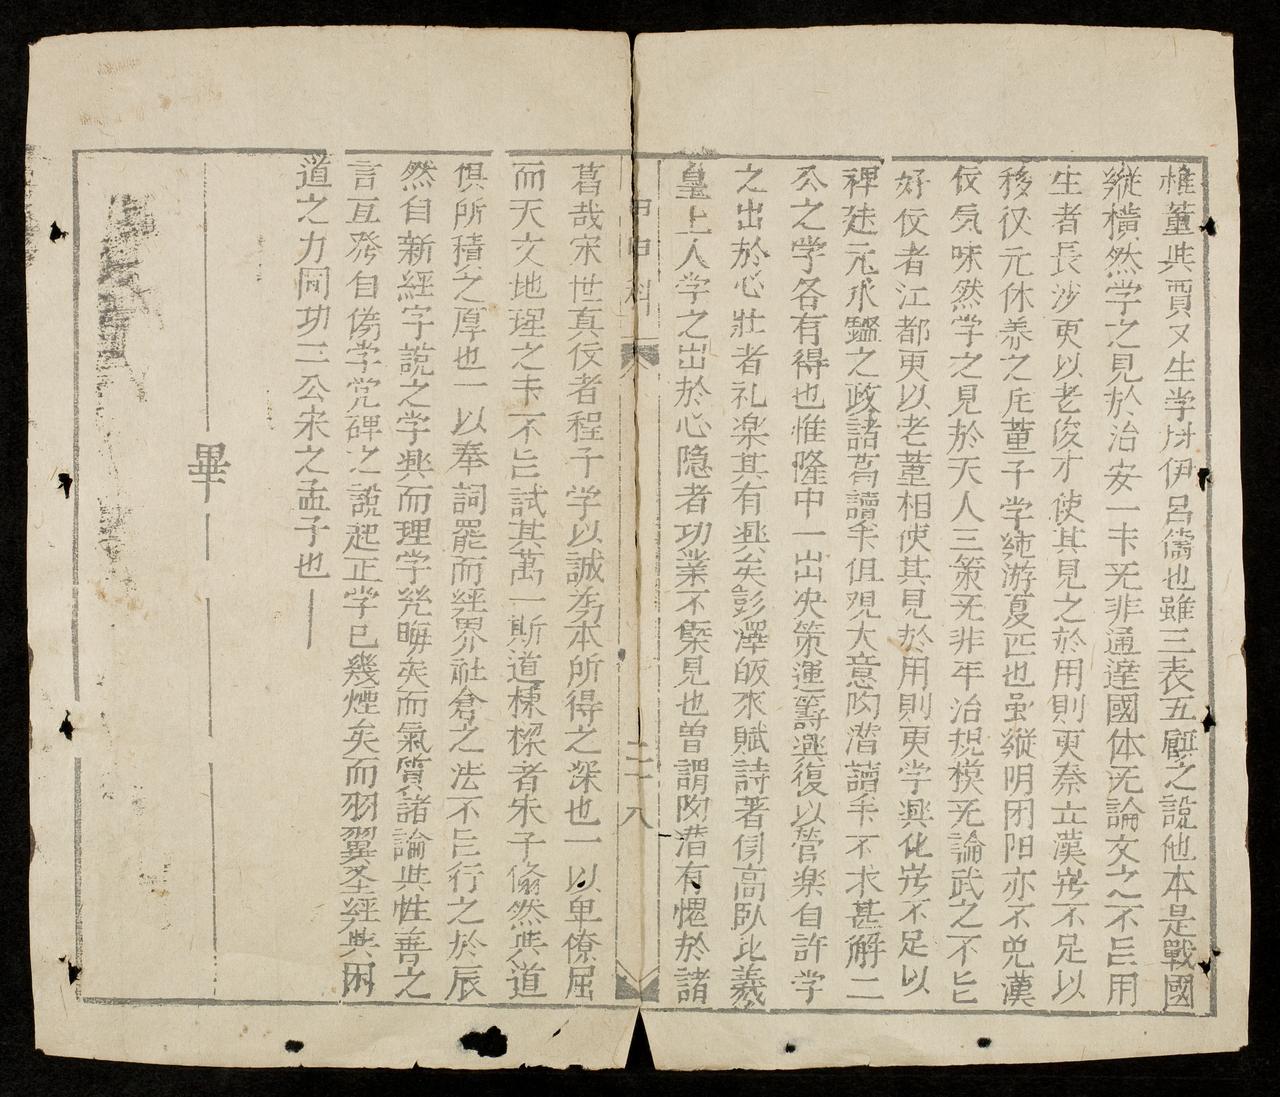 惟董與賈又生学皆伊呂儔也雖三表五餌之說他本是戰國
縱橫然学之見於治安一卡无非通達國体无論文之不㠯用
生者長沙更以老俊才使其見之於用則更秦立漢岂不足以
移汉元休养之厄董子学純游夏匹也虽縱明闭阳亦不免漢
佞気味然学之見於天人三策无非平治規模无論武之不㠯
好佞者江都更以老董相使其見於用則更学興化岂不足以
裨建元永鑑之政諸葛讀書但观大意陶潛讀書不求甚解二
公之学各有得也惟隆中一出决策運籌興復以管楽自許学
之出於心壯者礼楽其有興矣彭澤皈来賦詩著傳高臥比羲
皇上人学之出於心隐者功業不槩見也曽謂陶潛有愧於諸
甲申科
二十八
葛哉宋世真佞者程子学以誠為本所得之深也一以卑僚屈
而天文地理之卡不㠯試其萬一斯道棟樑者朱子翛然與道
俱所積之厚也一以奉詞罷而經界社倉之法不㠯行之於辰
然自新經字說之学興而理学晦矣而氣質諸論與性善之
言互發自偽学党碑之說起正学已幾煙矣而羽翼圣經與闲
道之力同功二公宋之孟子也
畢